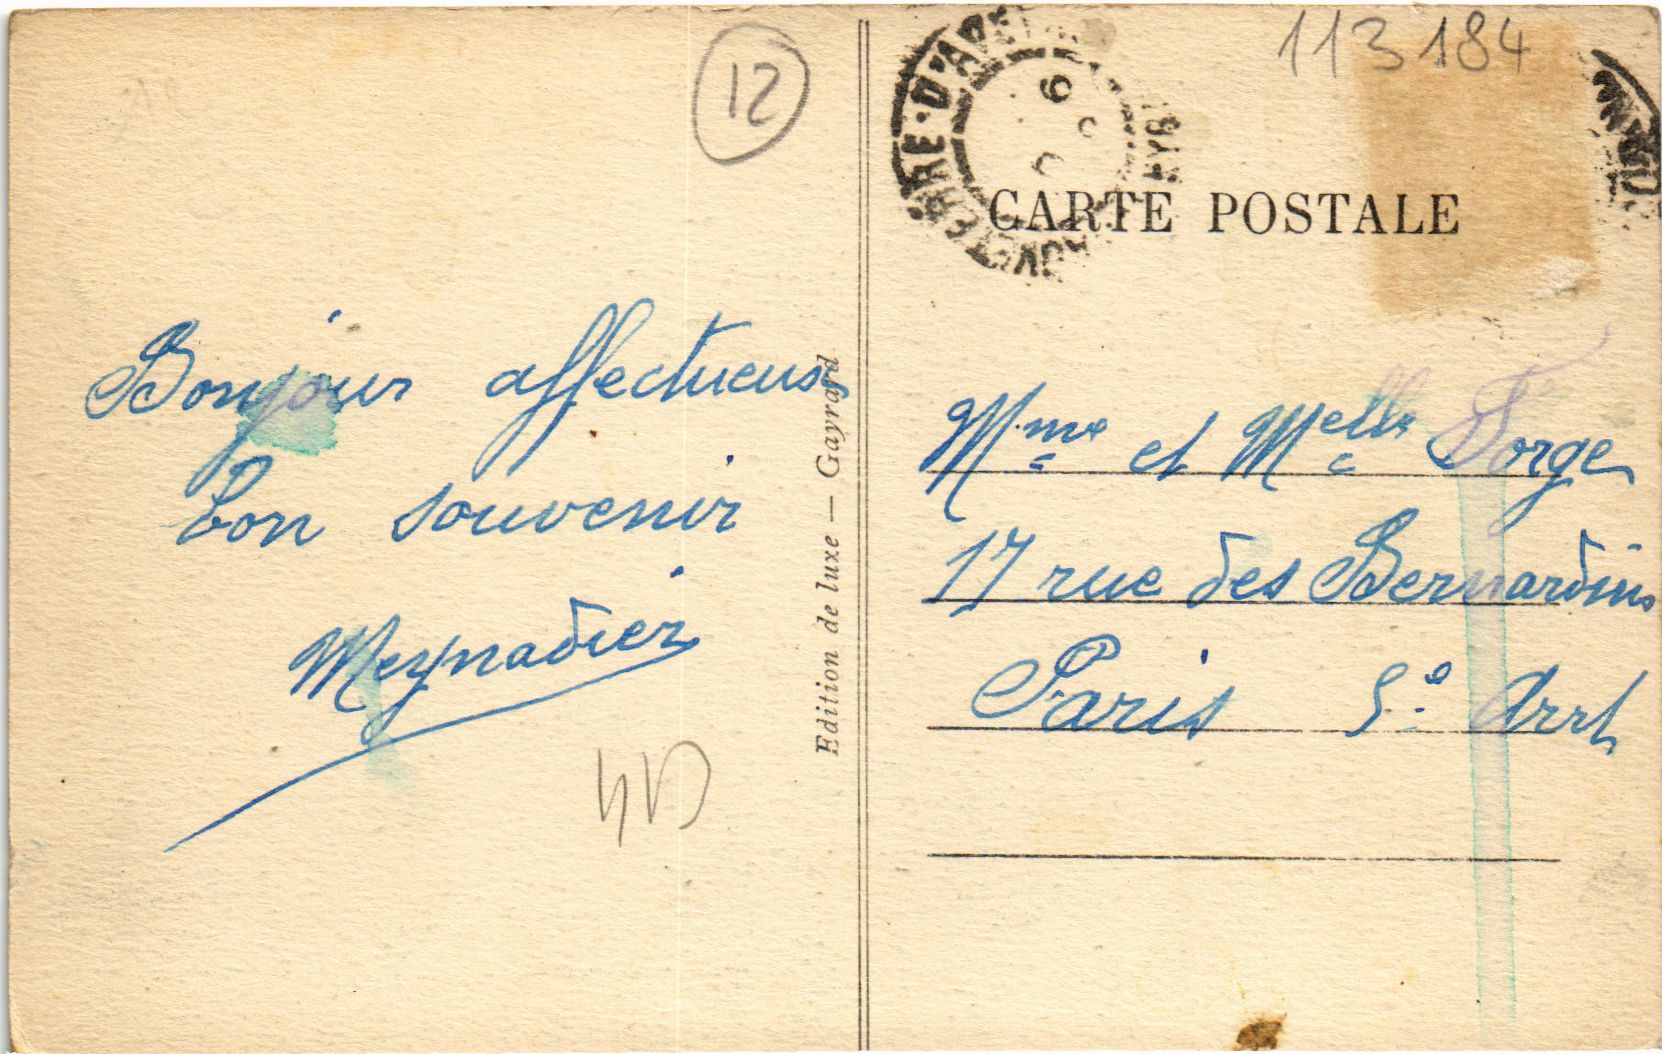 12
113184
CARTE POSTALE
Bonjour affectueux
bon souvenir
Meynadier
Edition de luxe — Gayrard
Mme et Melle Forge
17 rue des Bernardins
Paris 5e Arrt